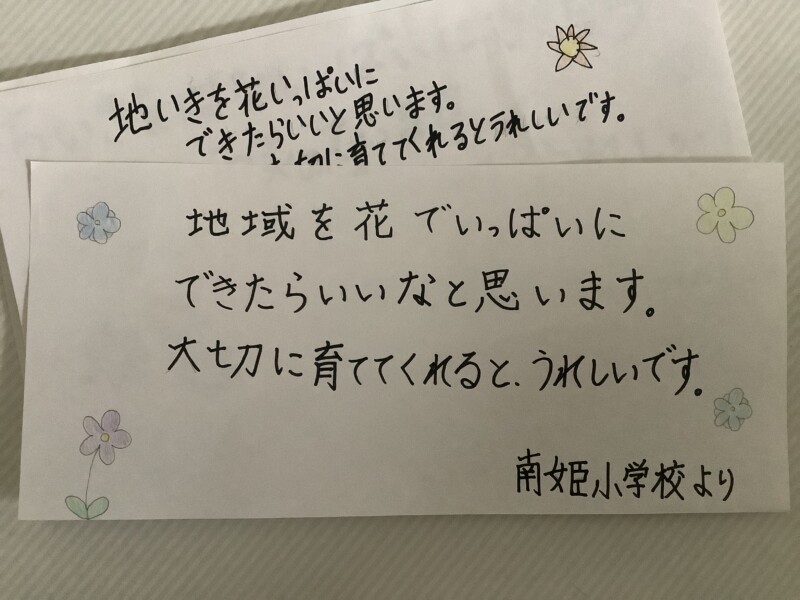 地いきを花いっぱいに
できたらいいと思います。
切に育ててくれるとうれしいです。
地域を花でいっぱいに
できたらいいなと思います。
大切に育ててくれると、うれしいです。
南姫小学校より